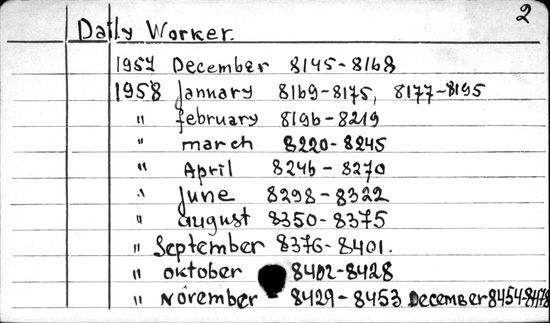 2
Daily Worker.
1957 December 8145-8168
1958 january 8169-8175, 8177-8195
" february 8196-8219
" march 8220-8245
" April 8246-8270
" June 8298-8322
" august 8350-8375
" September 8376-8401.
" oktober 8402-8428
" november 8429-8453 December 8454-8478